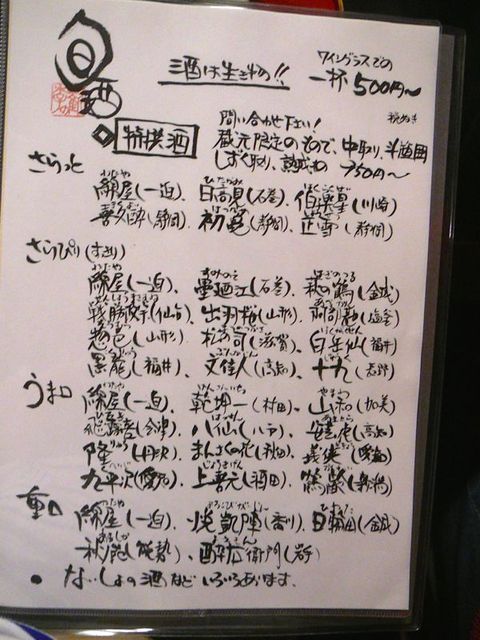 旬酒
酒は生きもの!!
ワイングラスでの
一杯 500円〜
税ぬき
特撰酒
問い合わせ下さい!
蔵元限定のもので、中取り、斗瓶囲
しずく取り、熟成もの 750円〜
さらっと
綿屋(一迫)、日高見(石巻)、伯楽星(川崎)
喜久酔(静岡)、初亀(静岡)、正雪(静岡)
さらぴり(すきり)
綿屋(一迫)、墨廼江(石巻)、萩の鶴(金成)
戦勝政宗(仙台)、出羽桜(山形)、阿部勘(塩釜)
(山形)、松の司(滋賀)、白岳仙(福井)
黒龍(福井)、文佳人(高知)、十九(長野)
うま口
綿屋(一迫)、乾坤一(村田)、山和(加美)
(会津)、八仙(八戸)、安芸虎(高知)
隆(丹沢)、まんさくの花(秋田)、
九平次(愛知)、上喜元(酒田)、鶴齢(新潟)
重口
綿屋(一迫)、悦凱陣(香川)、日輪田(金成)
秋鹿(能勢)、酔右衛門(岩手)
ないしょの酒などいろいろあります。